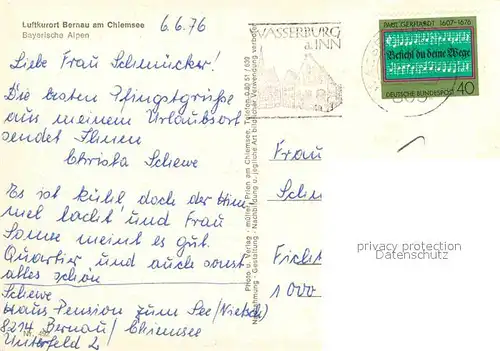 Luftkurort Bernau am Chiemsee
Bayerische Alpen
6.6.76
Liebe Frau Schmücker!
Die besten Pfingstgrüsse
aus meinem Urlaubsort
sendet Ihnen
Christa Schewe
Es ist kühl doch der Him
mel lacht und Frau
Sonne meint es gut.
Quartier und auch sonst
alles schön
Schewe
Haus Pension zum See (Nietsch)
8214 Bernau/Chiemsee
Unterfeld 2
Photo u. Verlag - müller, Prien am Chiemsee, Telefon
Nachahmung - Gestaltung - Nachbildung u. jegliche Art bildlicher Verwendung verboten
WASSERBURG
a. INN
PAUL GERHARDT 1607-1676
Befiehl du deine Wege
DEUTSCHE BUNDESPOST 40
Frau
Schm
Ficht
1000
privacy protection
Datenschutz